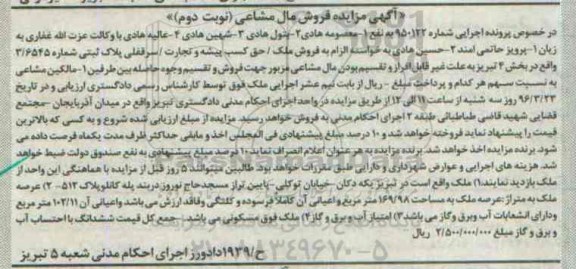 آگهی مزایده فروش مال مشاعی (نوبت دوم)
در خصوص پرونده اجرایی شماره ۹۵۰۱۲۲ به نفع ۱-معصومه هادی ۲-بتول هادی ۳-شهین هادی ۴-عالیه هادی با وکالت عزت الله غفاری به
زیان ۱-پرویز حاتمی امند ۲-حسین هادی به خواسته الزام به فروش ملک / حق کسب پیشه و تجارت / سرقفلی پلاک ثبتی شماره ۳/۶۵۴۵
واقع در بخش ۴ تبریز به علت غیر قابل افراز و تقسیم بودن مال مشاعی مزبور جهت فروش و تقسیم وجوه حاصله بین طرفین ۱-مالکین مشاعی
به نسبت سهم هر کدام و پرداخت مبلغ - ریال از بابت نیم عشر اجرایی ملک فوق توسط کارشناس رسمی دادگستری ارزیابی و در تاریخ
۹۶/۳/۲۳ روز سه شنبه از ساعت ۱۱ الی ۱۲ از طریق مزایده در واحد اجرای احکام مدنی دادگستری تبریز واقع در میدان آذربایجان -مجتمع
قضایی شهید قاضی طباطبائی طبقه ۲ اجرای احکام مدنی به فروش خواهد رسید. مزایده از مبلغ ارزیابی شده شروع و به کسی که بالاترین
قیمت را پیشنهاد نماید فروخته خواهد شد و ۱۰ درصد مبلغ پیشنهادی فی المجلس اخذ و مابقی حداکثر ظرف مدت یکماه فرصت داده می
شود. برنده مزایده اخذ خواهد شد. برنده مزایده به هر عنوان اعلام انصراف نماید ۱۰ درصد مبلغ پیشنهادی به نفع صندوق دولت ضبط خواهد
شد. هزینه های اجرایی و عوارض شهرداری و دارایی طبق مقررات خواهد بود. طالبین میتوانند ۵ روز قبل از مزایده با هماهنگی این واحد از
ملک بازدید نمایند. ۱) ملک واقع است در تبریز یکه دکان خیابان توکلی-پایین تراز مسجد حاج نوروز دربند پله کانلو پلاک ۵۱۲- ۲) عرصه
ملک به متراژ :عرصه ملک به مساحت ۱۶۹/۹۸ متر مربع و اعیانی آن کاملاً فرسوده و کلنگی وفاقد ارزش می باشد واعیانی آن ۱۰۲/۱۱ متر مربع
ودارای انشعابات آب وبرق وگاز می باشد ۳) امتیاز آب و برق و گاز ۴) ملک فوق مسکونی می باشد. جمع کل قیمت ششدانگ با احتساب آب
و برق و گاز مبلغ ۲/۵۰۰/۰۰۰/۰۰۰ ریال
ح/۱۹۳۹ دادورز اجرای احکام مدنی شعبه ۵ تبریز